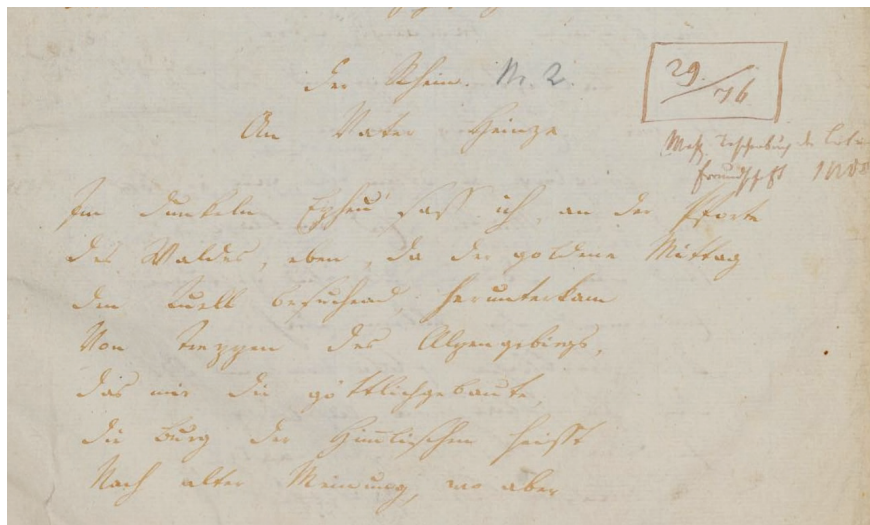 Der Rhein. Nr. 2.
29./76
An Vater Heinze
Im dunkeln Epheu saß ich an der Pforte
Des Waldes, eben, da der goldene Mittag
Den Quell besuchend, herunterkam
Von Treppen des Alpengebirgs,
Das mir die göttlichgebaute,
Die Burg der Himmlischen heißt
Nach alter Meinung, wo aber